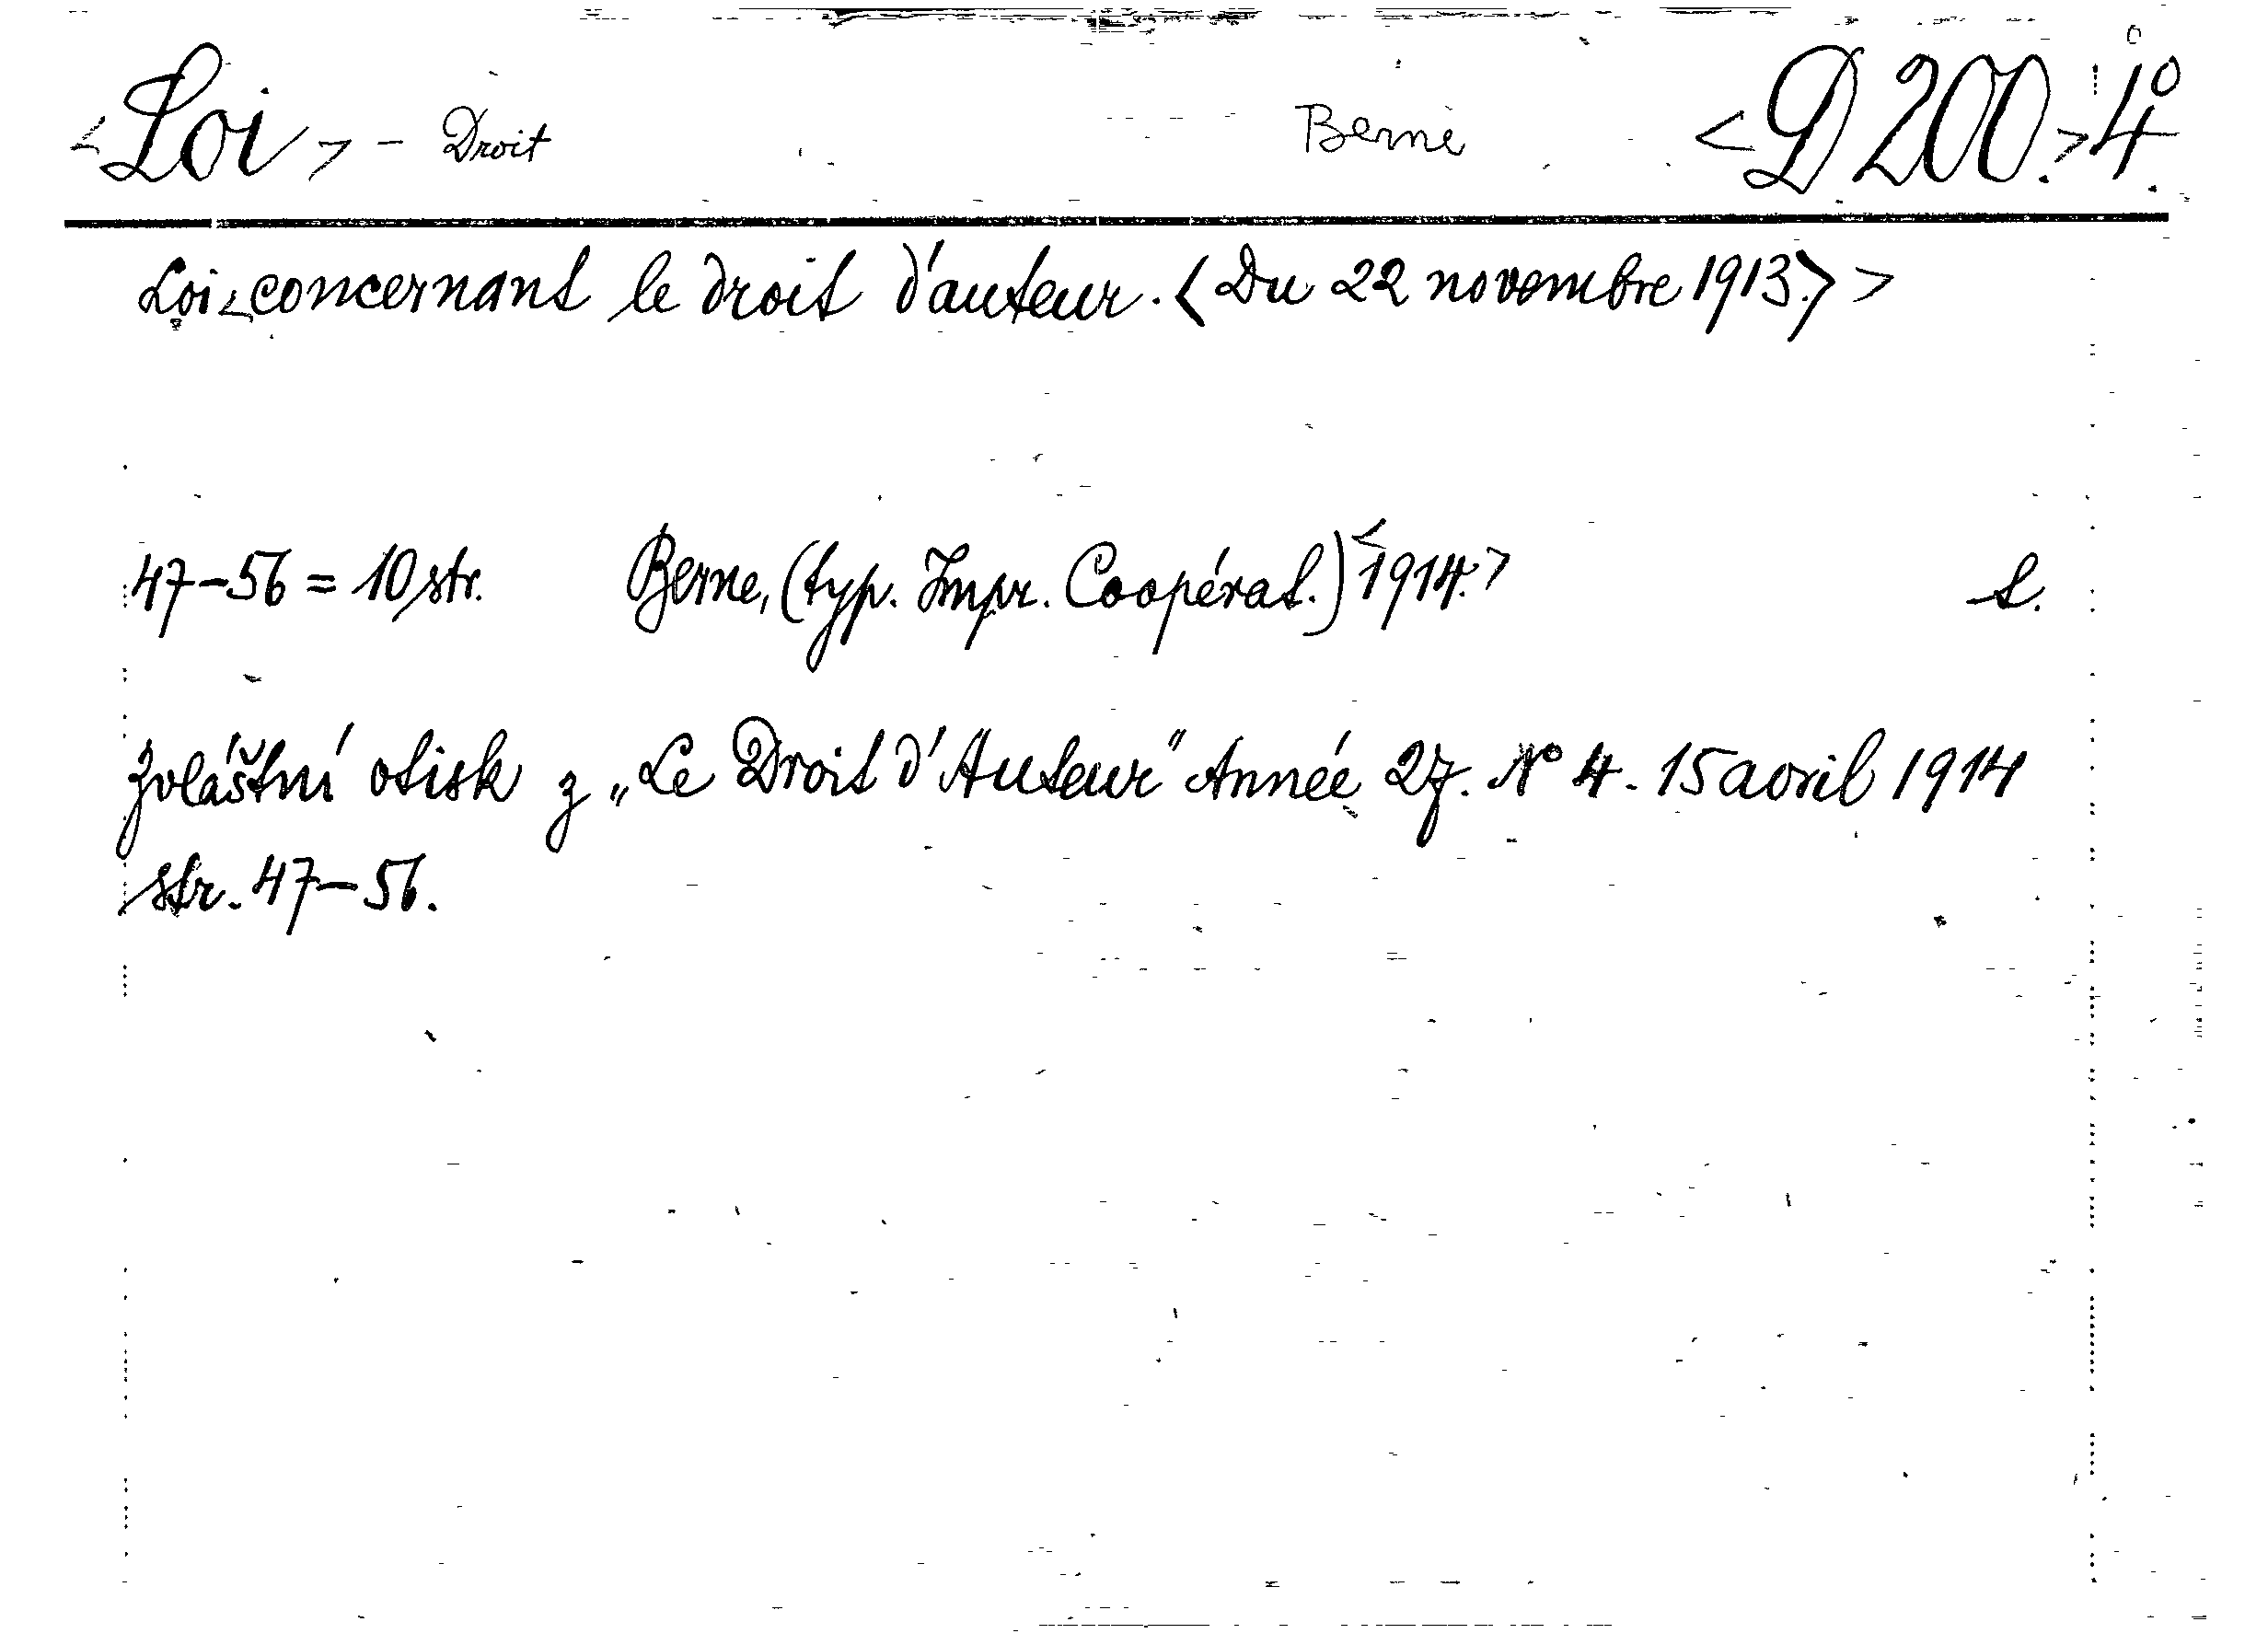 <Loi> - Droit Berne <D 200.> 4°.
Loi <concernant le droit d'auteur. <Du 22 novembre 1913.> >
47-56 = 10 str. Berne, (typ. Impr. Coopérat.) <1914.> L.
Zvláštní otisk z „Le Droit d'Auteur" Année 27. N° 4. 15 avril 1914
str. 47-56.